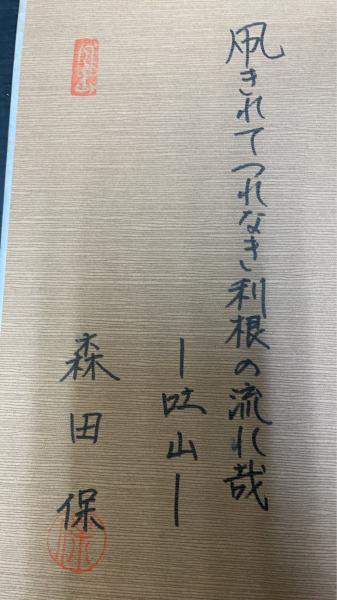 凧きれてつれなき利根の流れ哉
―吐山―
森田 保